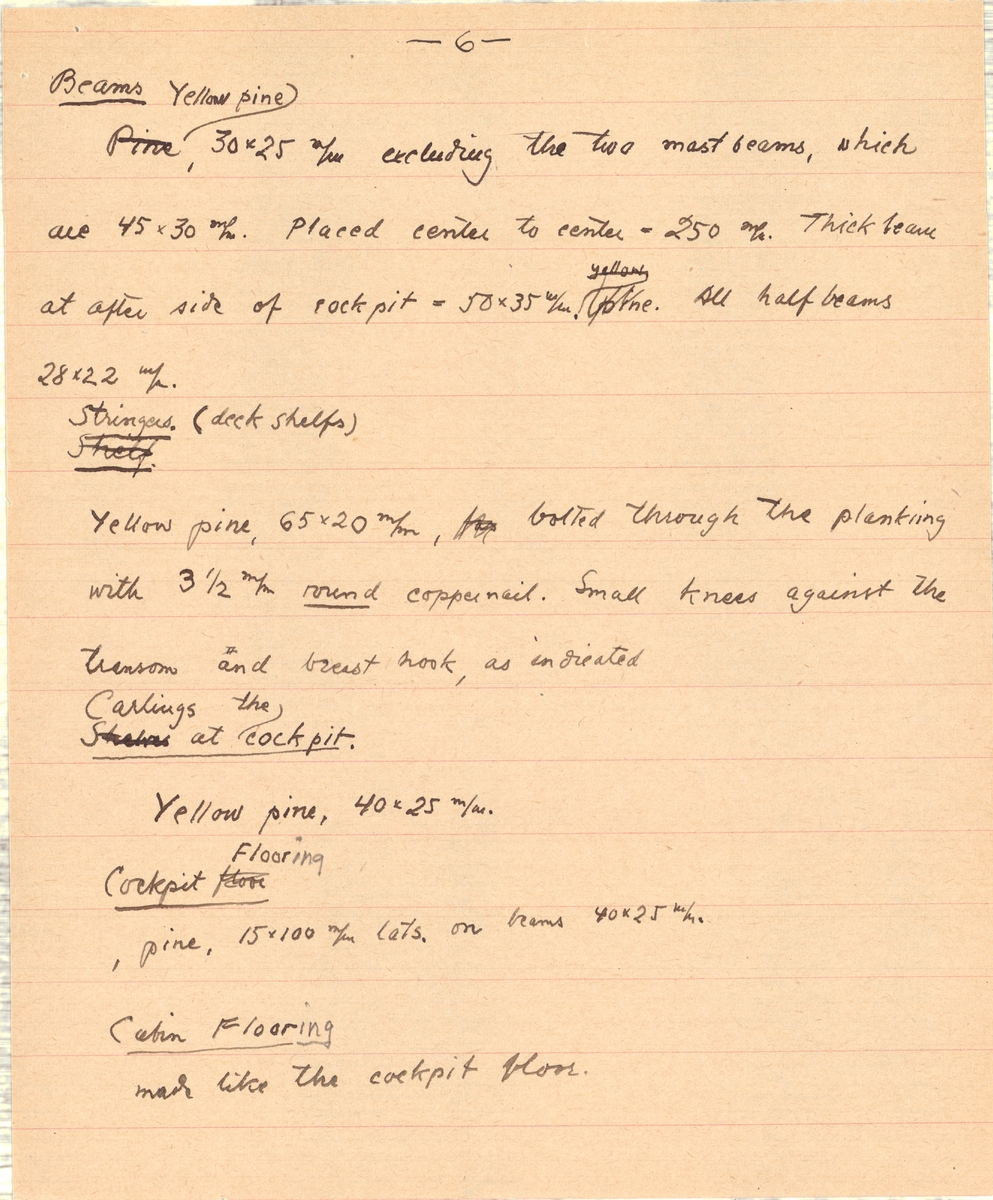 — 6 —
Beams Yellow pine
Pine, 30 × 25 m/m excluding the two mast beams, which
are 45 × 30 m/m. Placed center to center = 250 m/m. Thick beam
yellow
at after side of cockpit = 50 × 35 m/m. pine. All half beams
28 × 22 m/m.
Stringers. (deck shelfs)
Shelf.
Yellow pine, 65 × 20 m/m, bolted through the planking
with 3 1/2 m/m round coppernail. Small knees against the
transom and breast hook, as indicated
Carlings the
Shelves at cockpit.
Yellow pine, 40 × 25 m/m.
Flooring
Cockpit floor
, pine, 15 × 100 m/m lats. on beams 40 × 25 m/m.
Cabin Flooring
made like the cockpit floor.